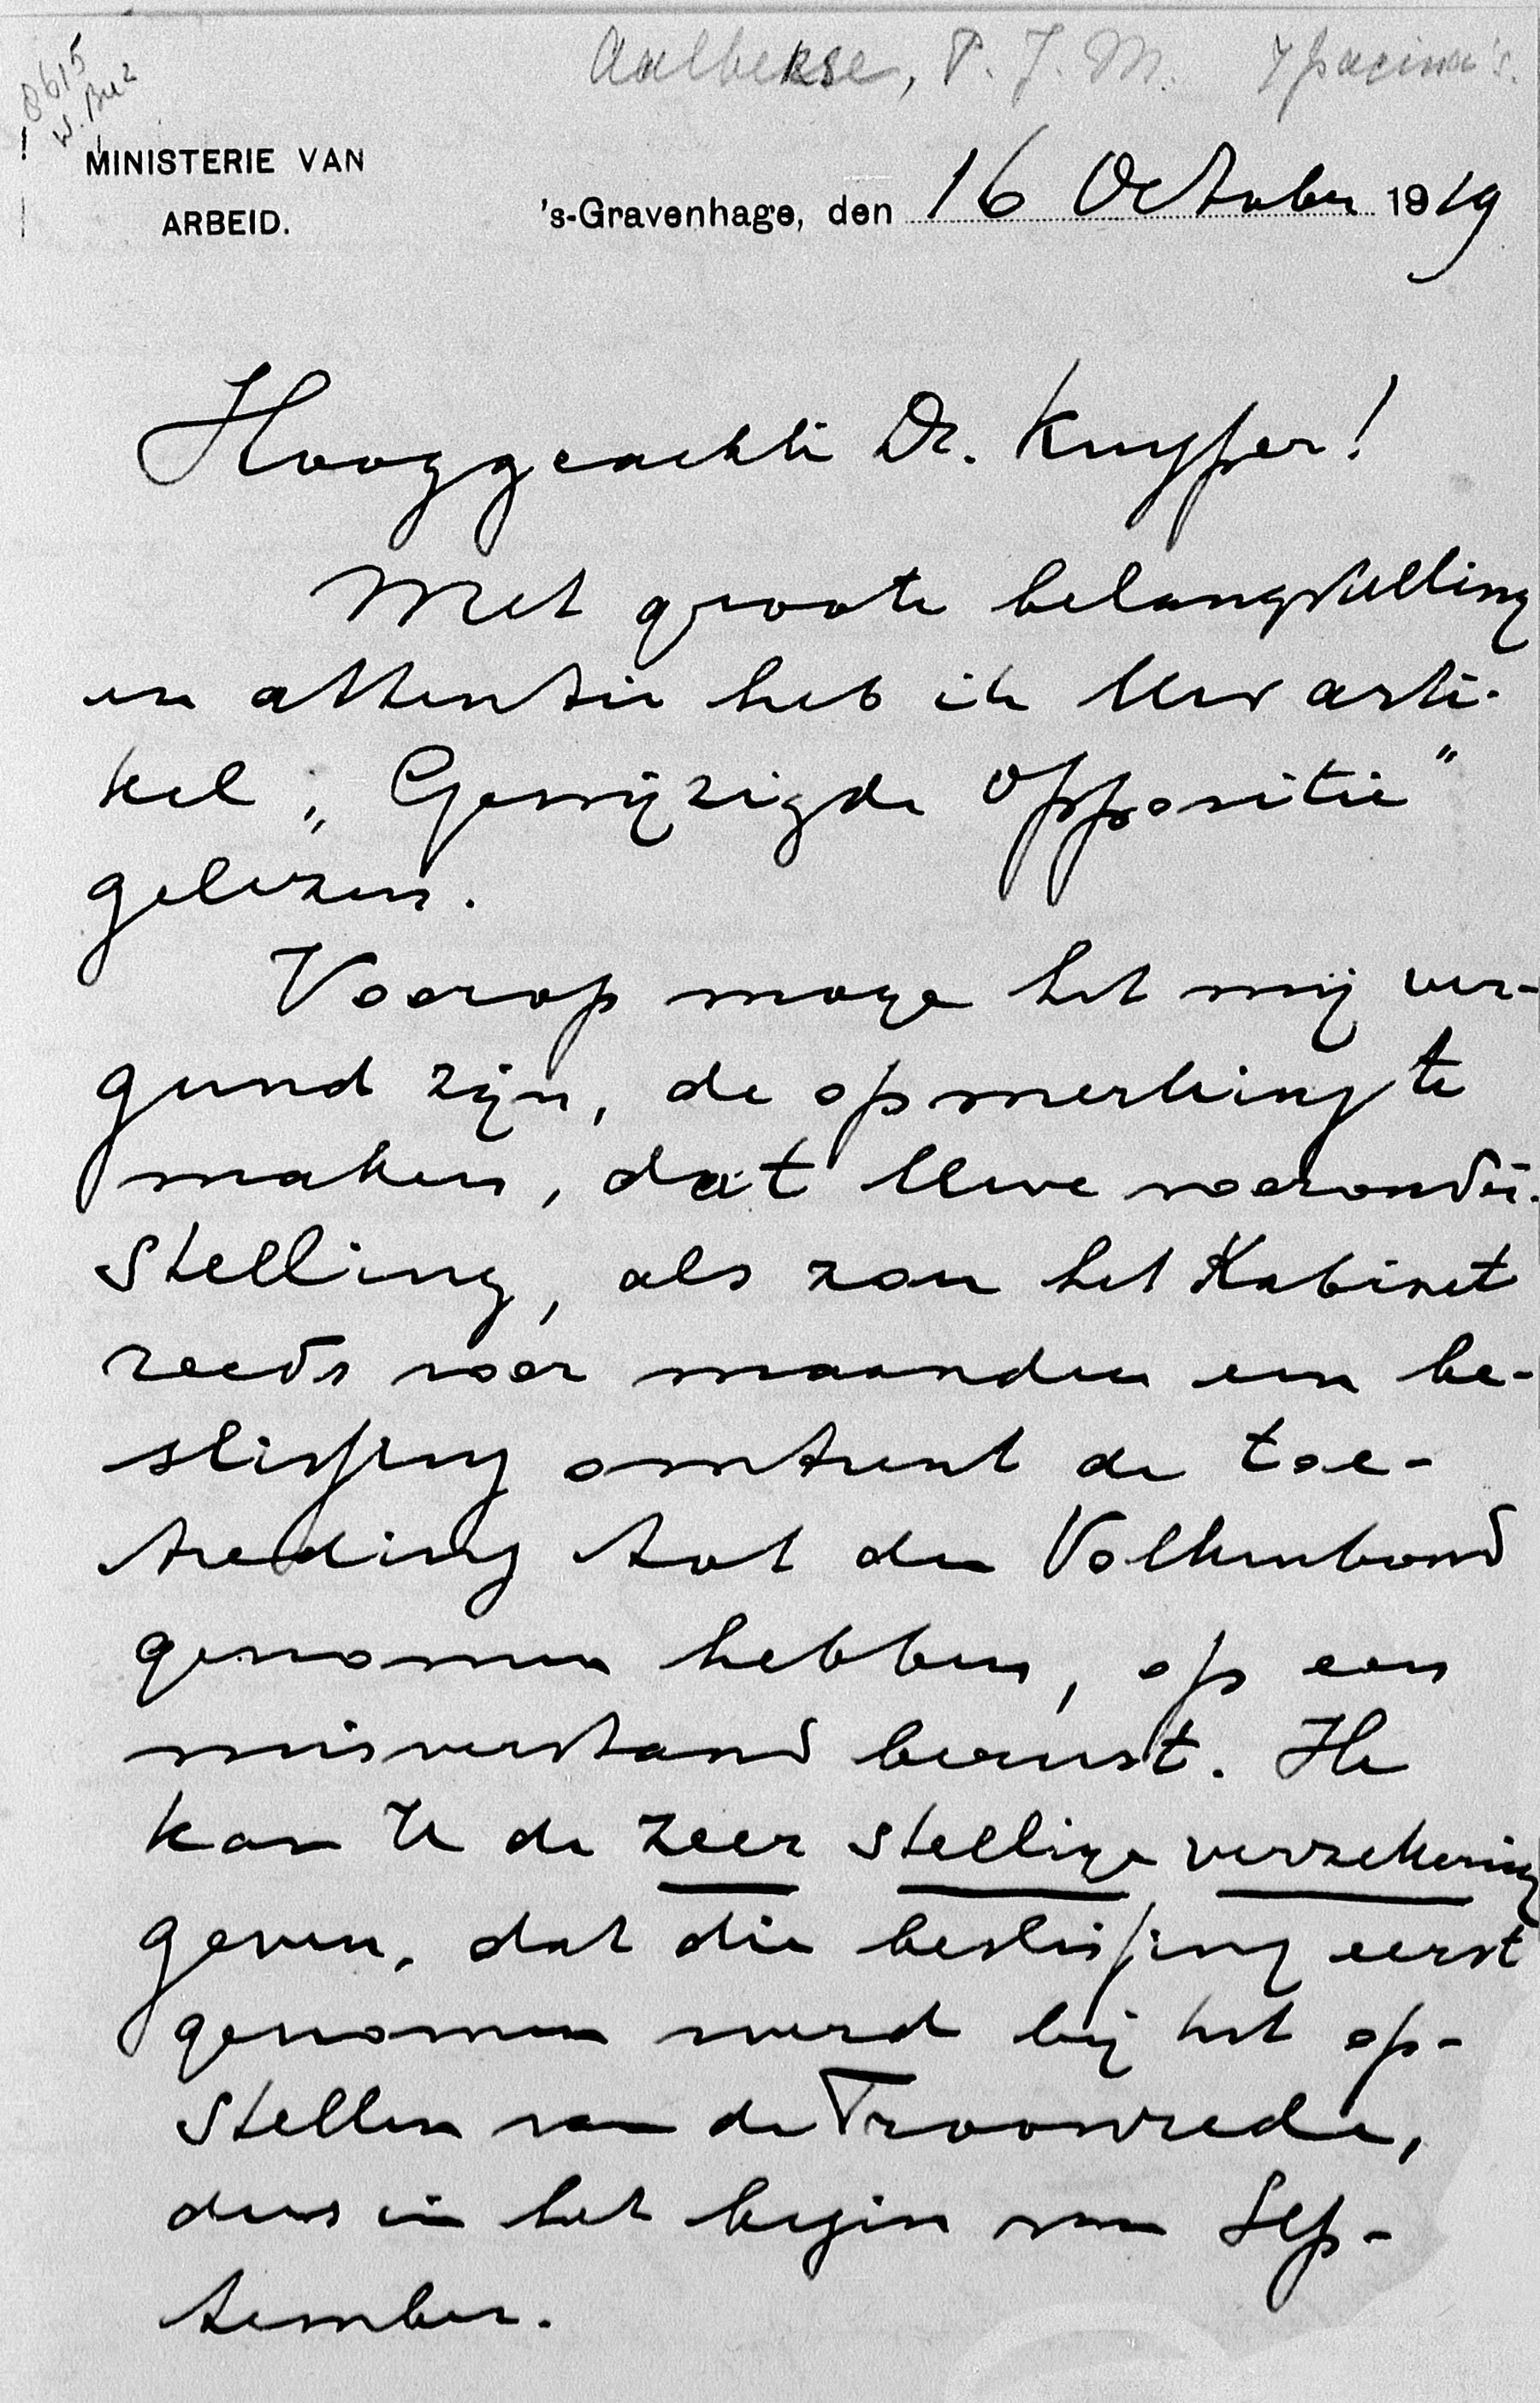 Aalberse, P. J. M. 7 pagina's.
8615
MINISTERIE VAN
ARBEID.
's-Gravenhage, den 16 October 1919
Hooggeachte Dr. Kuyper!
Met groote belangstelling
en attentie heb ik Uw arti-
kel „Gewijzigde Oppositie"
gelezen.
Voorop moge het mij ver-
gund zijn, de opmerking te
maken, dat Uwe vooronder-
stelling, als zou het Kabinet
reeds voor maanden een be-
slissing omtrent de toe-
treding tot den Volkenbond
genomen hebben, op een
misverstand berust. Ik
kan U de zeer stellige verzekering
geven, dat die beslissing eerst
genomen werd bij het op-
stellen van de Troonrede,
dus in het begin van Sep-
tember.